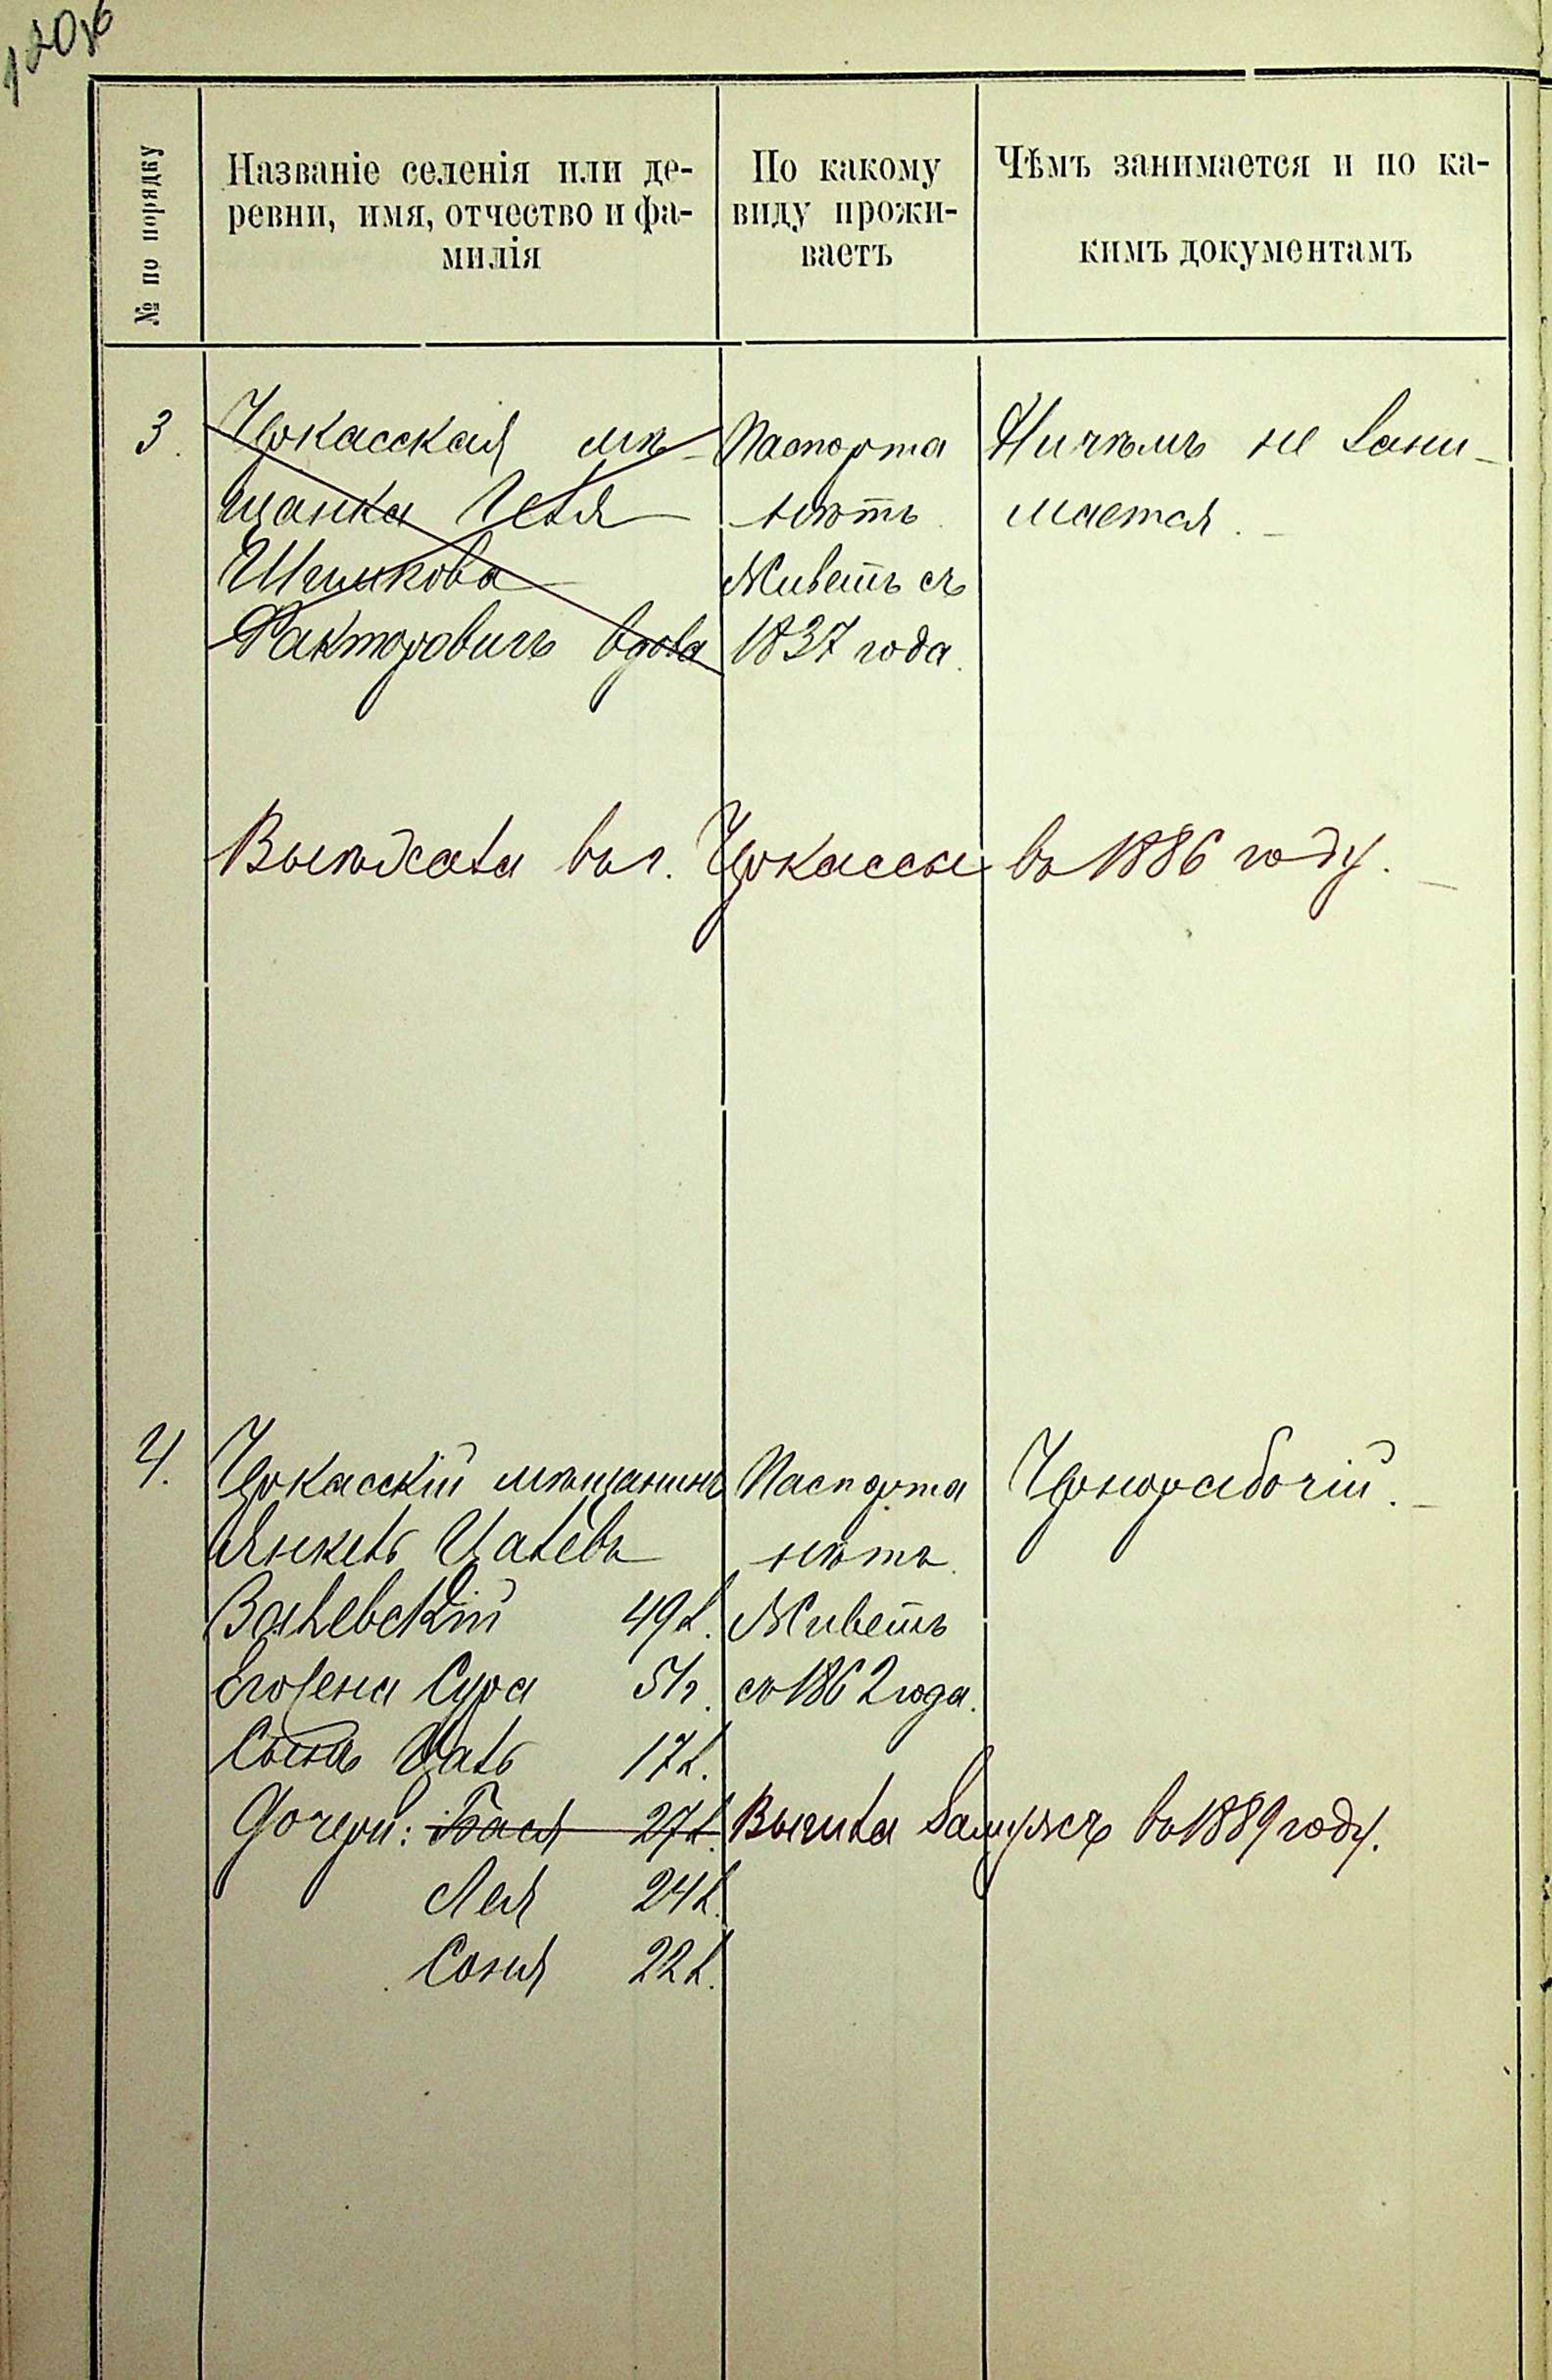 120об
№ по порядку
Названіе селенія или де-
ревни, имя, отчество и фа-
милія
По какому
виду прожи-
ваетъ
Чѣмъ занимается и по ка-
кимъ документамъ
3.
Черкасская мѣ-
щанка
Факторовичъ вдова
Паспорта
нѣтъ.
Живетъ съ
1837 года.
Ничѣмъ не зани-
мается.
Выѣхала въ г. Черкассы въ 1886 году.
4.
Черкасскій мѣщанинъ
Янкель Цалевъ
49 л.
Его жена Сура 51 г.
Сынъ Цаль 17 л.
Дочери: Бася 27 л.
Лея 24 л.
Соня 22 л.
Паспорта
нѣтъ.
Живетъ
съ 1862 года.
Вышла замужъ въ 1889 году.
Чернорабочій.